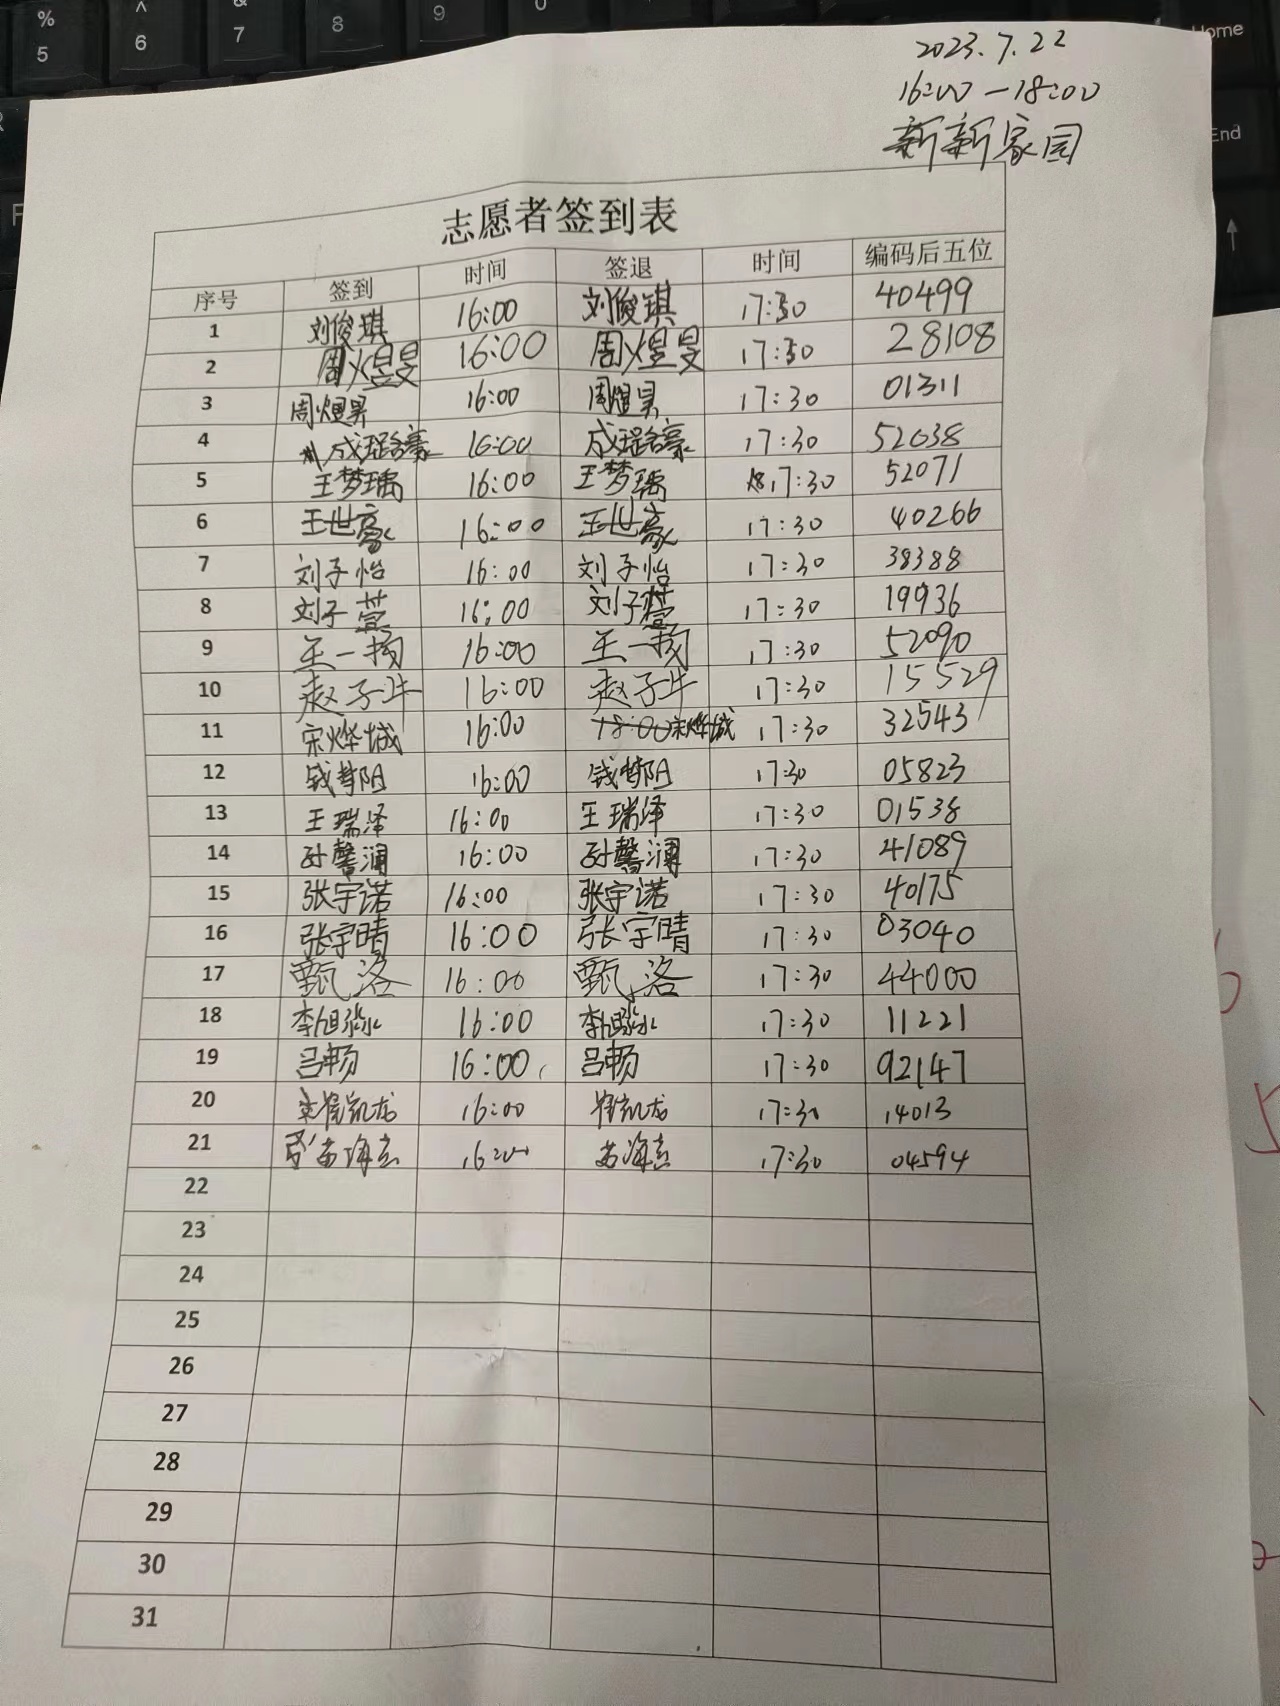 2023.7.22
16:00—18:00
新新家园
志愿者签到表
序号 签到 时间 签退 时间 编码后五位
1 刘俊琪 16:00 刘俊琪 17:30 40499
2 周煜旻 16:00 周煜旻 17:30 28108
3 周煜昊 16:00 周煜昊 17:30 01311
4 成瑶豪 16:00 成瑶豪 17:30 52038
5 王梦瑀 16:00 王梦瑀 17:30 52071
6 王世豪 16:00 王世豪 17:30 40266
7 刘子怡 16:00 刘子怡 17:30 38388
8 刘子萱 16:00 刘子萱 17:30 19936
9 王一扬 16:00 王一扬 17:30 52090
10 赵子牛 16:00 赵子牛 17:30 15529
11 宋烨城 16:00 18:00 宋烨城 17:30 32543
12 16:00 17:30 05823
13 王瑞泽 16:00 王瑞泽 17:30 01538
14 孙馨澜 16:00 孙馨澜 17:30 41089
15 张宇诺 16:00 张宇诺 17:30 40175
16 张宇晴 16:00 张宇晴 17:30 03040
17 甄洛 16:00 甄洛 17:30 44000
18 李旭淼 16:00 李旭淼 17:30 11221
19 吕畅 16:00 吕畅 17:30 92147
20 崔凯龙 16:00 崔凯龙 17:30 14013
21 16:00 17:30 04594
22
23
24
25
26
27
28
29
30
31